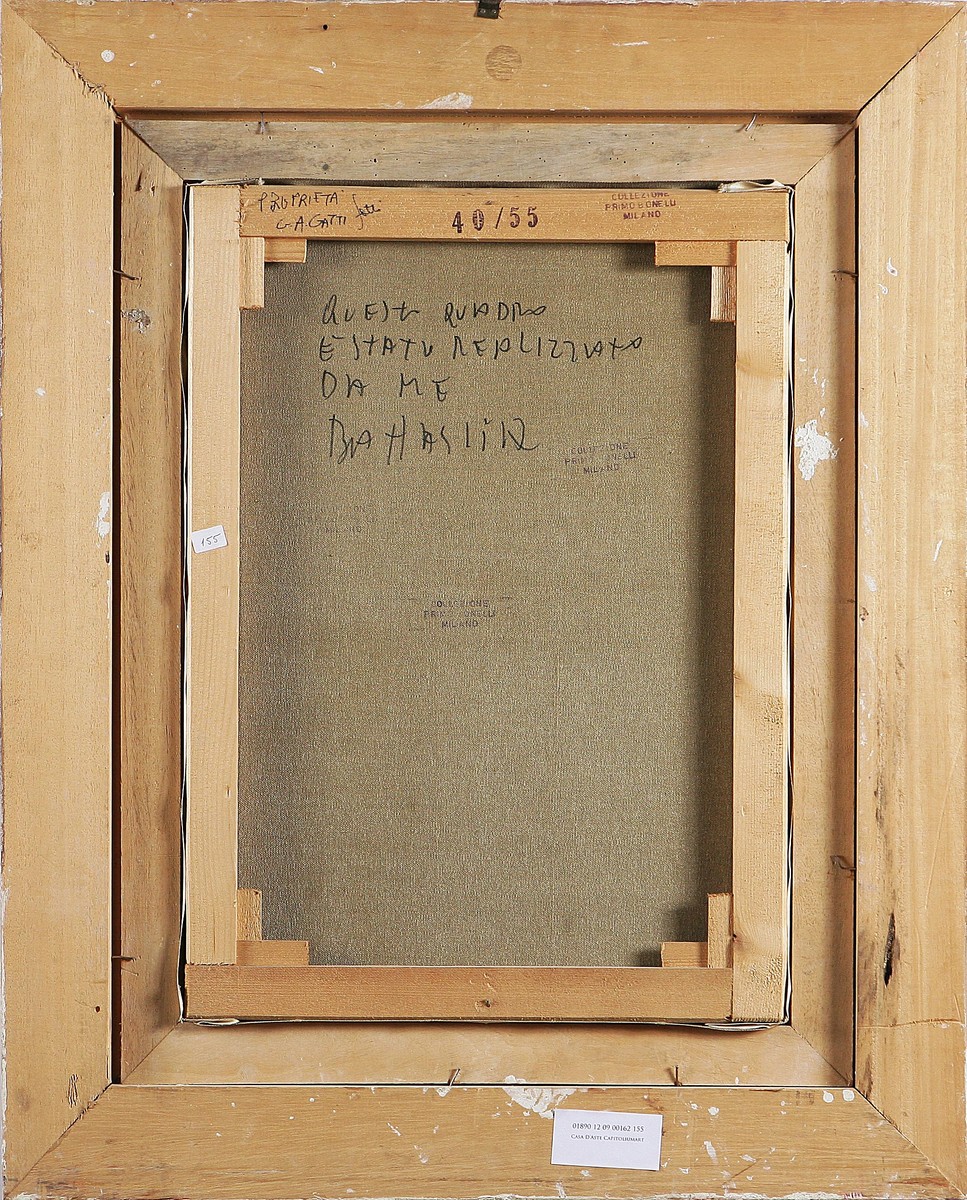 PROPRIETA'
G.A. GATTI
40/55
COLLEZIONE
PRIMO BONELLI
MILANO
QUESTO QUADRO
E STATO REALIZZATO
DA ME
COLLEZIONE
PRIMO BONELLI
MILANO
MILANO
155
COLLEZIONE
PRIMO BONELLI
MILANO
01890 12 09 00162 155
CASA D'ASTE CAPITOLIUMART